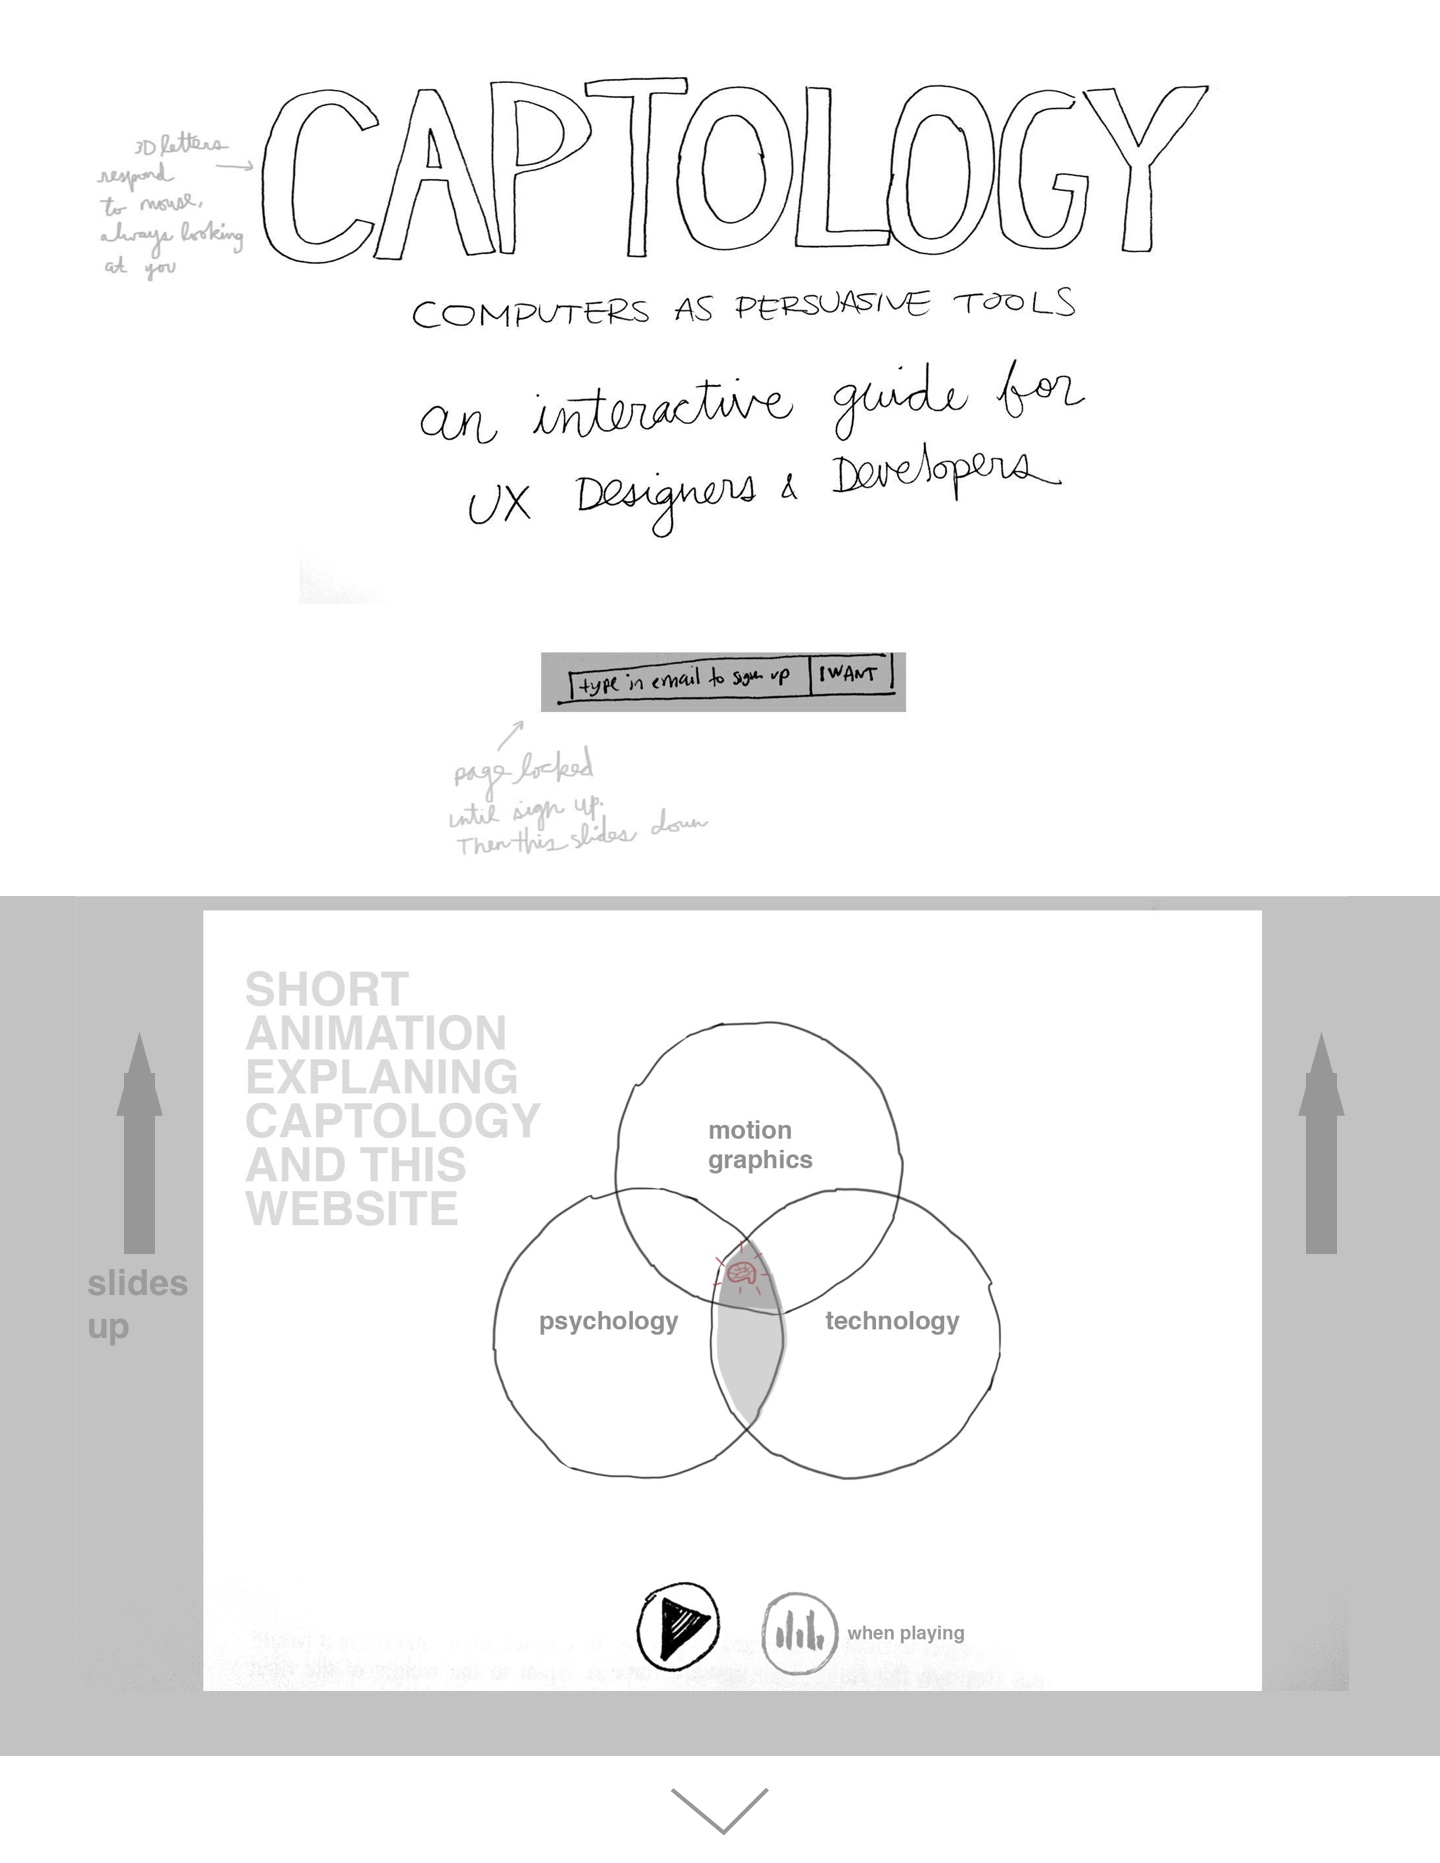 CAPTOLOGY
3D letters
respond
to mouse,
always looking
at you
COMPUTERS AS PERSUASIVE TOOLS
an interactive guide for
UX Designers & Developers
type in email to sign up I WANT
page locked
until sign up.
Then this slides down
SHORT
ANIMATION
EXPLANING
CAPTOLOGY
AND THIS
WEBSITE
motion
graphics
slides
up
psychology
technology
when playing